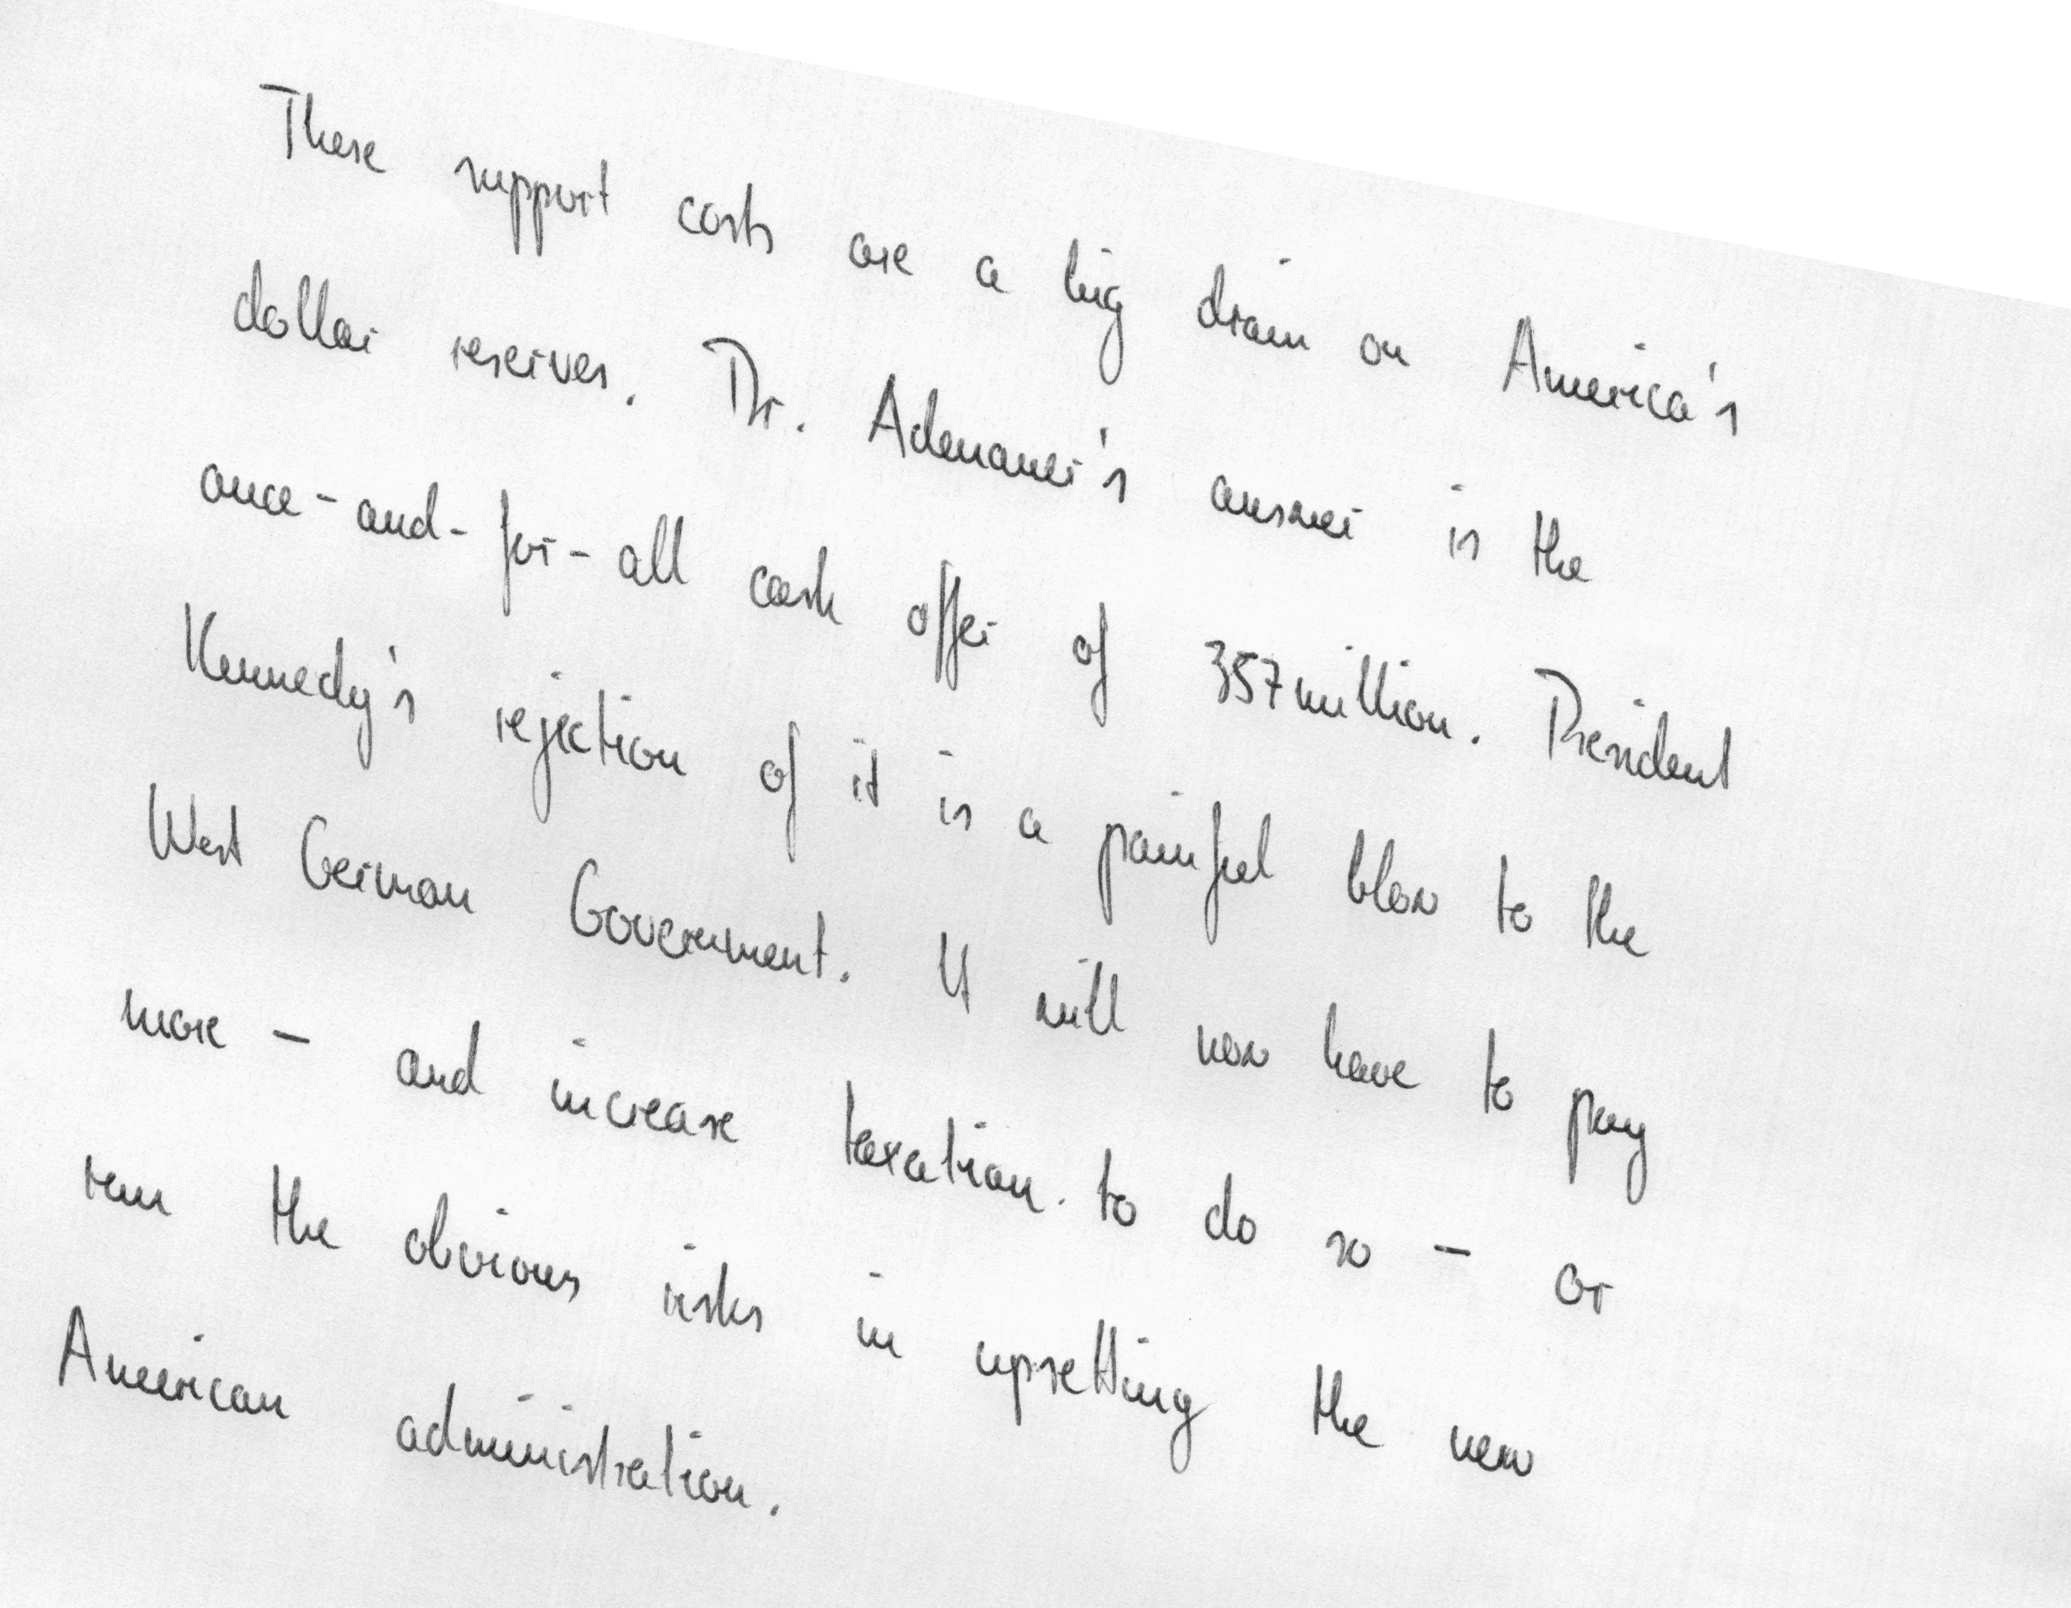 These support costs are a big drain on America's
dollar reserves. Dr. Adenauer's answer is the
once-and-for-all cash offer of 357million. President
Kennedy's rejection of it is a painful blow to the
West German Government. It will now have to pay
more - and increase taxation to do so - or
run the obvious risks in upsetting the new
American administration.